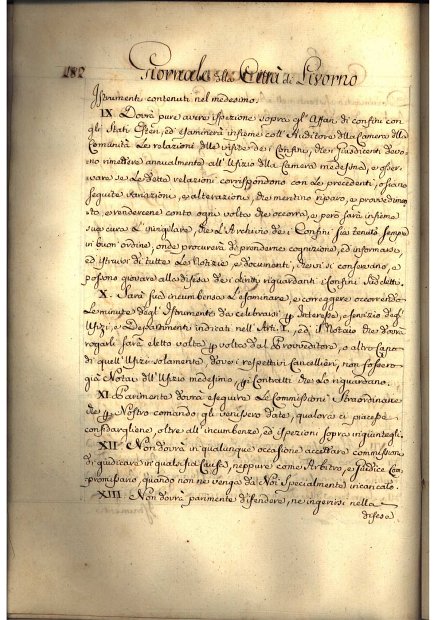 182 Giornale della Città di Livorno
Istrumenti contenuti nel medesimo.
IX. Dovrà pure avere ispezione sopra gl' Affari di confini con
gli Stati Esteri, ed esaminerà insieme coll' Auditore della Camera delle
Comunità le relazioni delle visite dei Confini, che i Giusdicenti devo-
no rimettere annualmente all' Ufizio della Camera medesima, e osser-
vare se le dette relazioni corrispondono con le precedenti, o siano
seguite variazioni, e alterazioni, che meritino riparo, e provvedimen-
to, e rendercene conto ogni volta che occorra, e però sarà insieme
sua cura l' invigilare, che l' Archivio dei Confini sia tenuto sempre
in buon' ordine, onde procurerà di prenderne cognizione, ed informarsi,
ed istruirsi di tutte le Notizie, e documenti, che vi si conservano, e
possono giovare alla difesa dei diritti riguardanti i Confini suddetti.
X. Sarà sua incumbenza l' esaminare, e correggere occorrendo
le minute degl' Istrumenti da celebrarsi per Interesse, e servizio degl'
Ufizj, e Dipartimenti indicati nell' Art. I., ed il Notaio che dovrà
rogarli sarà eletto volta per volta dal Provveditore, o altro Capo
di quell' Ufizio solamente, dove i respettivi Cancellieri, non fossero
già Notai dell' Ufizio medesimo, per i Contratti che lo riguardano.
XI. Parimente dovrà eseguire le Commissioni straordinarie
che per Nostro comando gli venissero date, qualora ci piacesse
confidargliene oltre all' incumbenze, ed ispezioni sopra ingiuntegli.
XII. Non dovrà in qualunque occasione accettare commissione
di giudicare in qualsisia Causa, neppure come Arbitro, o Giudice Com-
promissario, quando non ne venga da Noi specialmente incaricato.
XIII. Non dovrà parimente difendere, ne ingerirsi nella
difesa